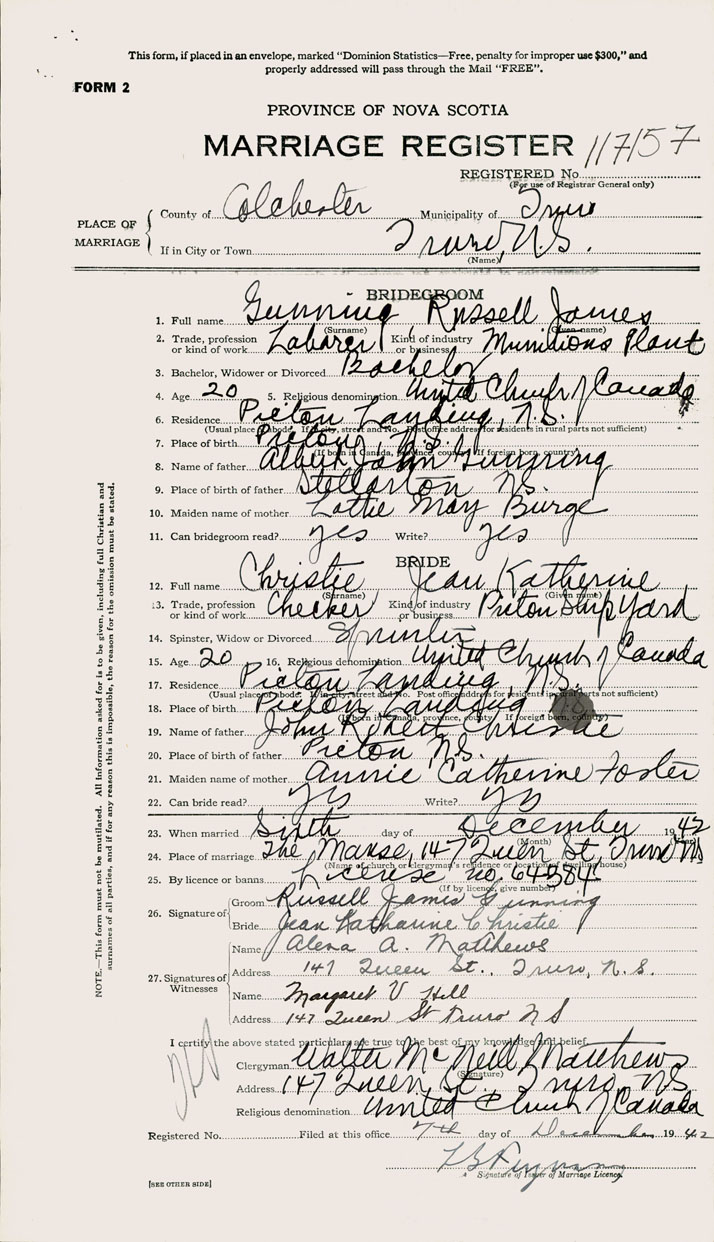 This form, if placed in an envelope, marked "Dominion Statistics—Free, penalty for improper use $300," and
properly addressed will pass through the Mail "FREE".
FORM 2
PROVINCE OF NOVA SCOTIA
MARRIAGE REGISTER 117157
REGISTERED No.
(For use of Registrar General only)
PLACE OF MARRIAGE
County of Colchester Municipality of Truro
If in City or Town Truro, N.S.
(Name)
BRIDEGROOM
1. Full name Gunning Russell James
(Surname) (Given name)
2. Trade, profession or kind of work Laborer Kind of industry or business Munitions Plant
3. Bachelor, Widower or Divorced Bachelor
4. Age 20 5. Religious denomination United Church of Canada
6. Residence Pictou Landing, N.S.
(Usual place of abode. If in city, street and No. Post office address for residents in rural parts not sufficient)
7. Place of birth Pictou, N.S.
(If born in Canada, province, county. If foreign born, country)
8. Name of father Albert John Gunning
9. Place of birth of father Stellarton N.S.
10. Maiden name of mother Lottie May Burge
11. Can bridegroom read? yes Write? yes
BRIDE
12. Full name Christie Jean Katherine
(Surname) (Given name)
13. Trade, profession or kind of work Checker Kind of industry or business Pictou Ship Yard
14. Spinster, Widow or Divorced Spinster
15. Age 20 16. Religious denomination United Church of Canada
17. Residence Pictou Landing, N.S.
(Usual place of abode. If in city, street and No. Post office address for residents in rural parts not sufficient)
18. Place of birth Pictou Landing N.S.
(If born in Canada, province, county If foreign born, country)
19. Name of father John Robert Christie
20. Place of birth of father Pictou N.S.
21. Maiden name of mother Annie Catherine Foster
22. Can bride read? yes Write? yes
23. When married Sixth day of December 1942
(Month) (Year)
24. Place of marriage The Manse, 147 Queen St, Truro NS
(Name of church or clergyman's residence or location of dwelling house)
25. By licence or banns License no. 64584
(If by licence, give number)
26. Signature of
Groom Russell James Gunning
Bride Jean Katharine Christie
27. Signatures of Witnesses
Name Alena A. Matthews
Address 147 Queen St., Truro, N.S.
Name Margaret V Hill
Address 147 Queen St Truro N S
I certify the above stated particulars are true to the best of my knowledge and belief.
Clergyman Walter McNeill Matthews
(Signature)
Address 147 Queen St, Truro, NS
Religious denomination United Church of Canada
Registered No. Filed at this office 7th day of December 1942
Signature of Issuer of Marriage Licence.
[SEE OTHER SIDE]
NOTE.—This form must not be mutilated. All information asked for is to be given, including full Christian and
surnames of all parties, and if for any reason this is impossible, the reason for the omission must be stated.